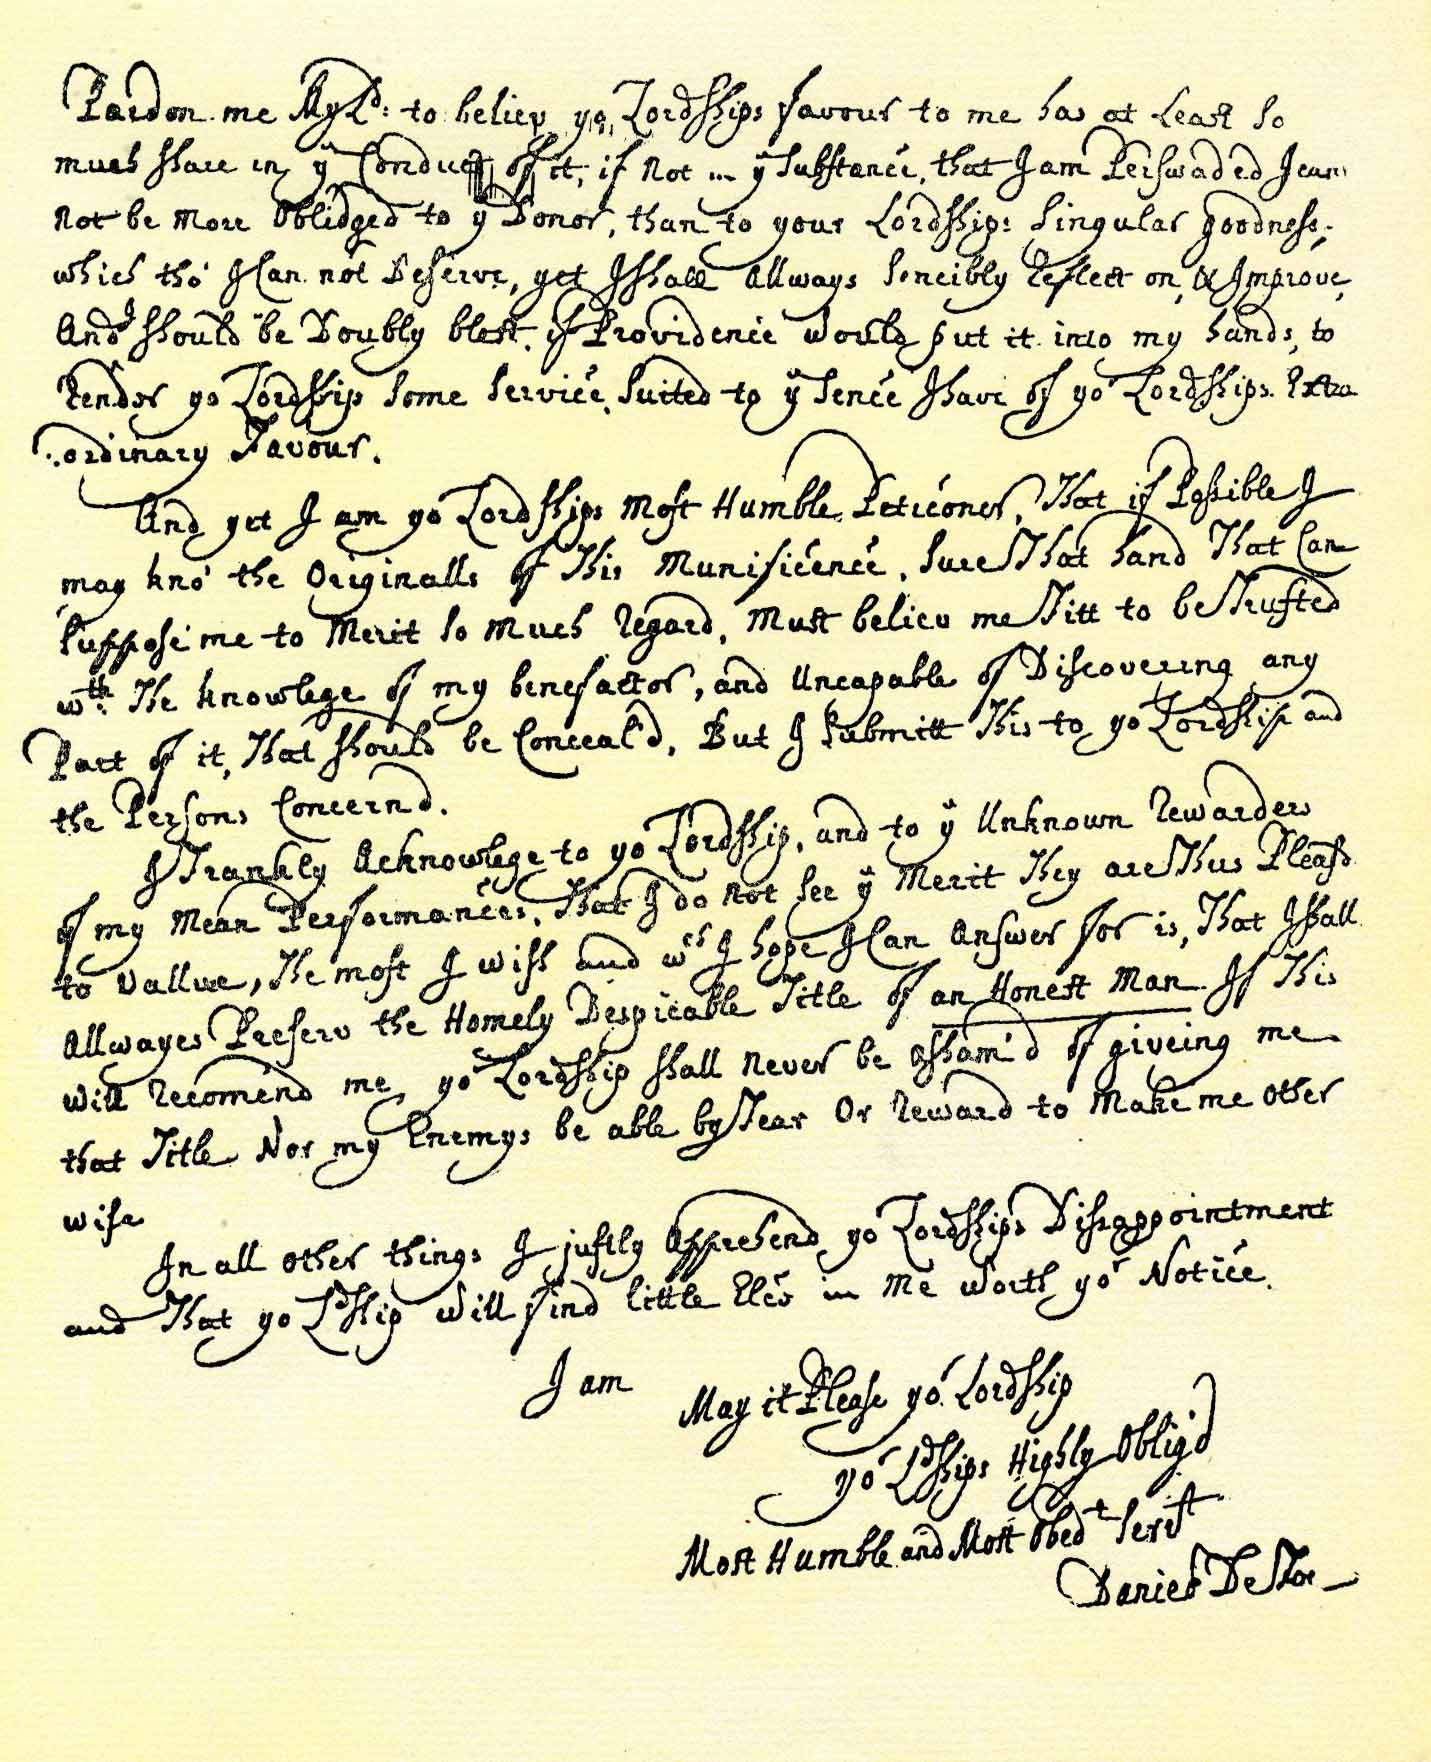 Pardon me My Ld: to believ yor Lordships favour to me has at Least So
much share in ye Conduct of it, if Not in ye Substance, that I am Perswaded I can
Not be More Oblidged to ye Donor, than to your Lordships Singular goodness,
which tho' I Can not Deserve, yet I shall Allways Sencibly Reflect on, & Improve,
And I should be Doubly blest, if Providence Would put it into my hands, to
Render yor Lordship Some Service, Suited to ye Sence I have of yor Lordships Extra
:ordinary Favour.
And yet I am yor Lordships Most Humble Peticoner, That if Possible I
may kno' the Originalls of This Munificence, Sure That hand That Can
Suppose me to Merit So Much Regard, Must believ me Fitt to be Trusted
wth. The knowlege of my benefactor, and Uncapable of Discovering any
Part of it, That should be Conceal'd, But I Submitt This to yor Lordship and
the Persons Concernd.
I Frankly Acknowlege to yor Lordship, and to ye Unknown Rewarders
of my Mean Performances, That I do Not See ye Merit They are Thus Pleasd
to Vallue, The most I wish and wch I hope I Can Answer for is, That I shall
Allwayes Preserv the Homely Despicable Title of an Honest Man. If This
will Recomend me yor Lordship shall Never be asham'd of giveing me
that Title Nor my Enemys be able by Fear Or Reward to Make me Other
wise
In all Other things I justly Apprehend yor Lordships Disappointment
and That yor Ldship Will find Little Else in Me Worth yor Notice.
I am
May it Please yor Lordship
yor Ldships Highly Oblig'd
Most Humble and Most Obedt Servt
Daniel De Foe